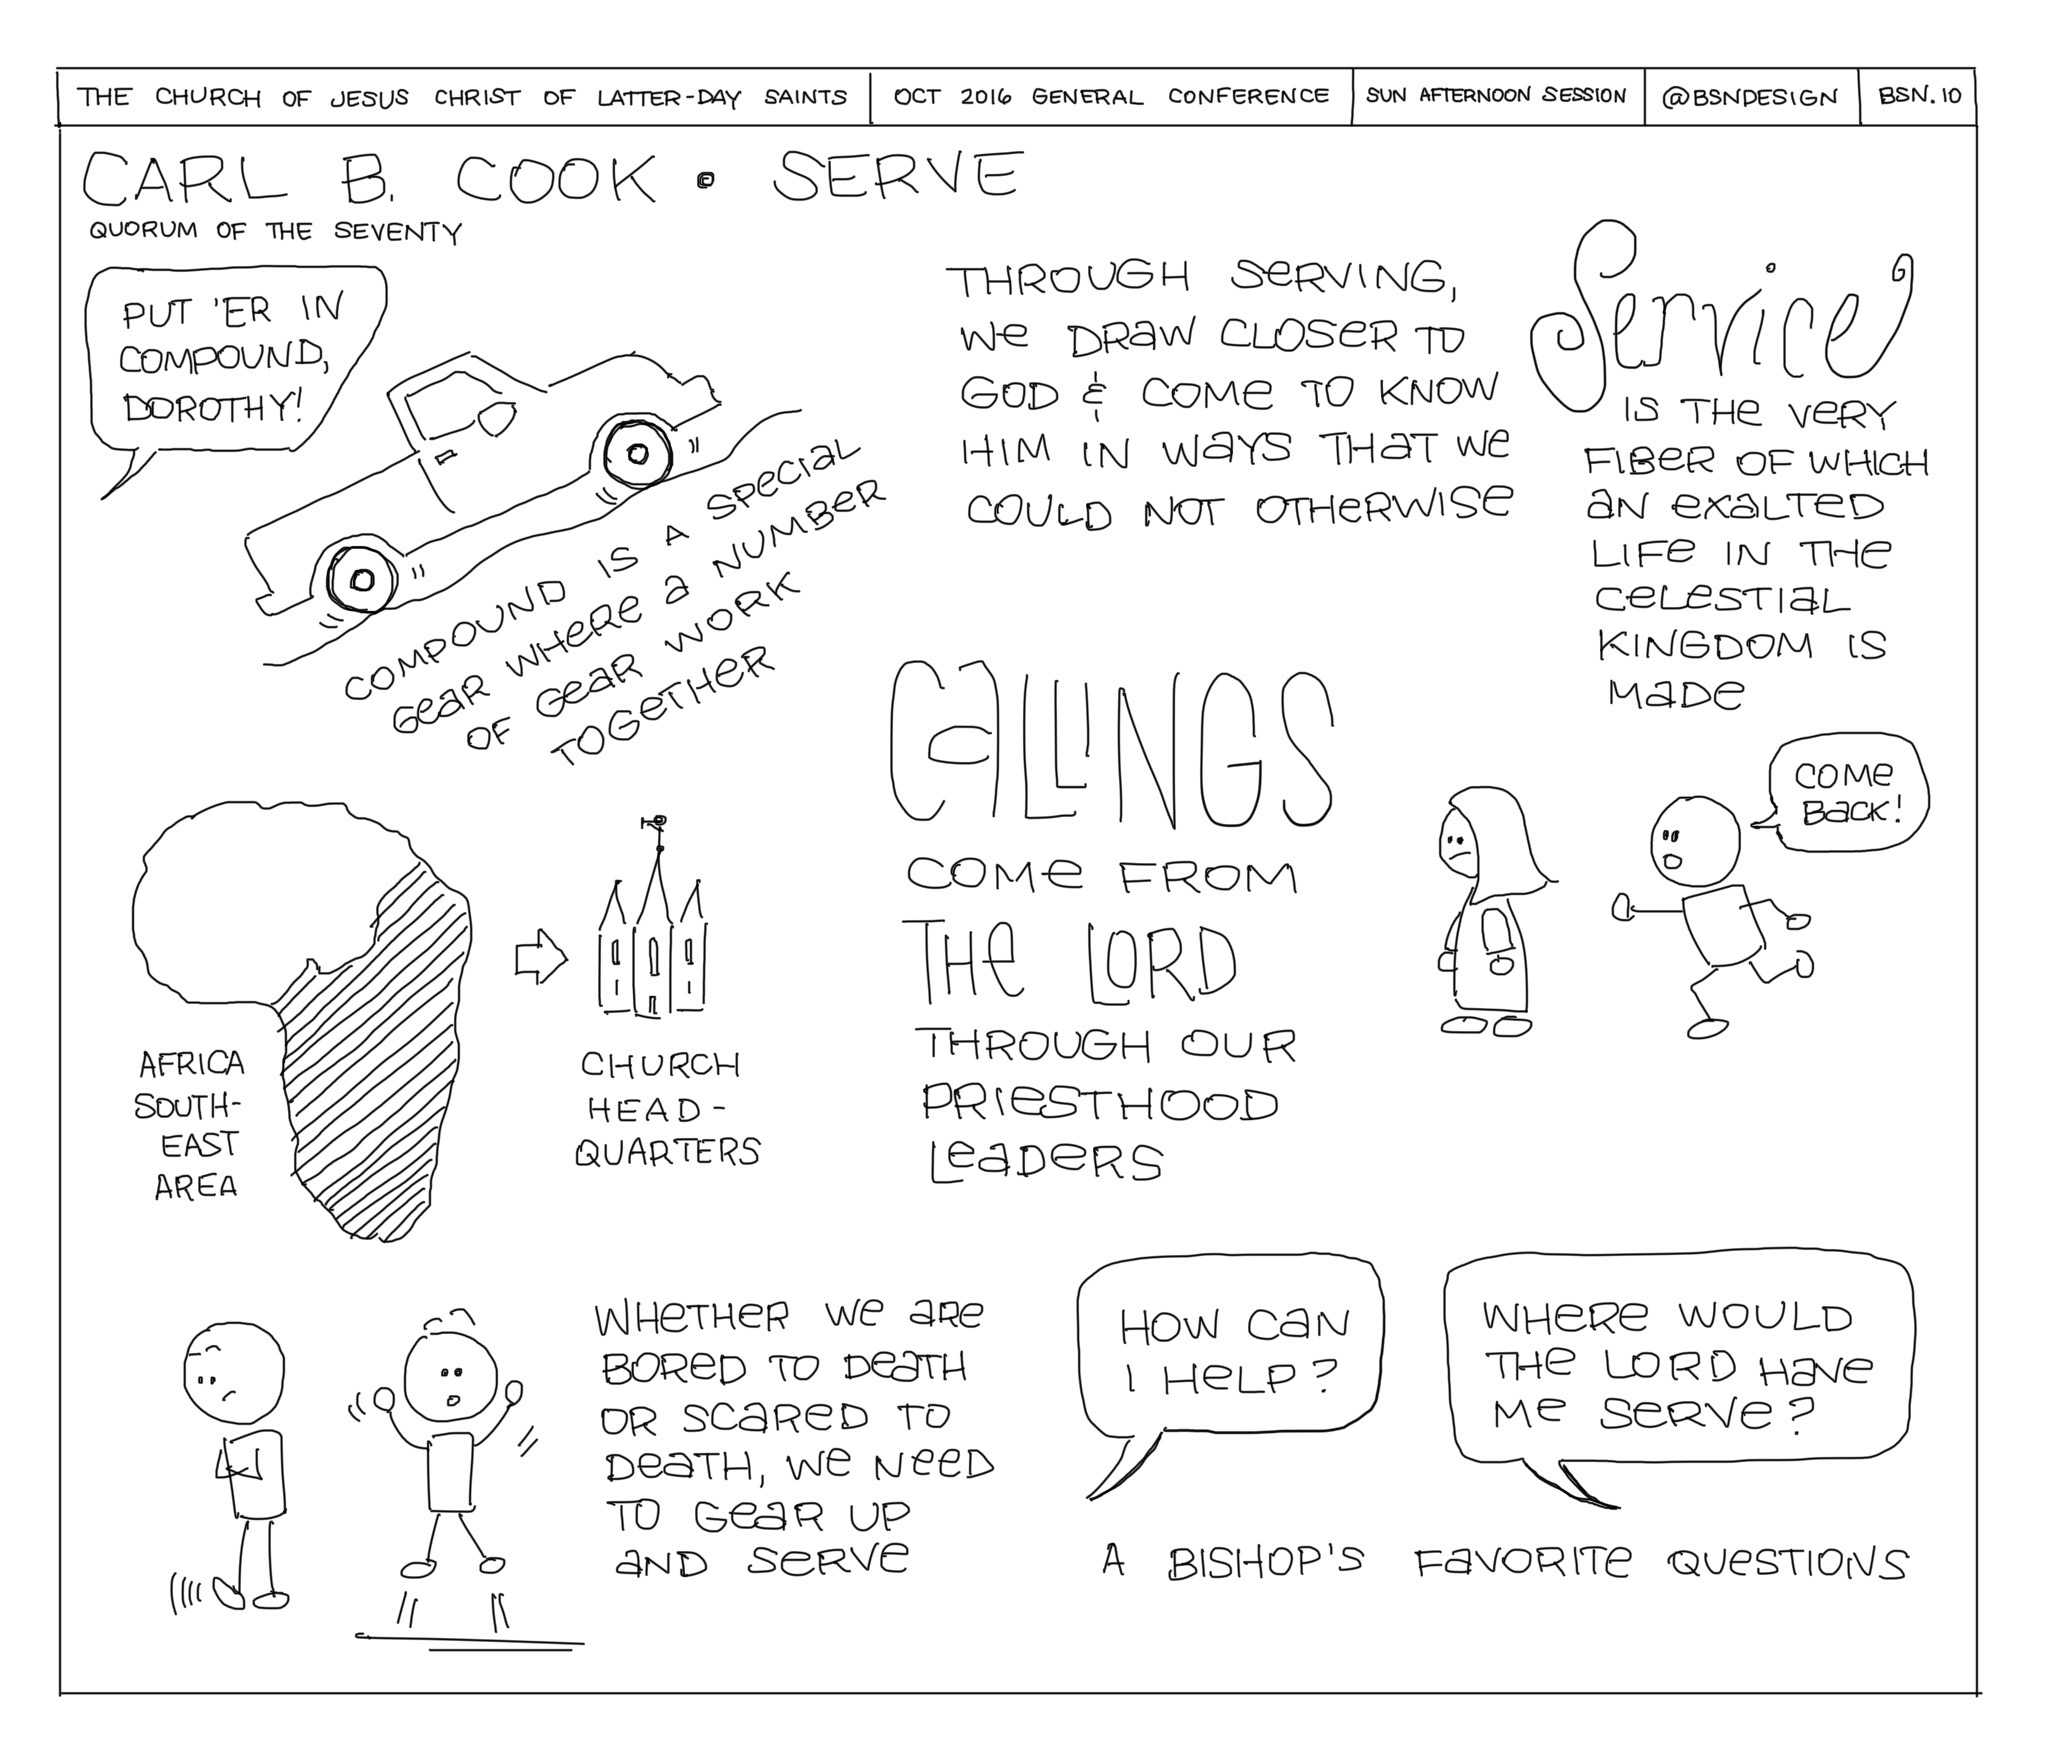 THE CHURCH OF JESUS CHRIST OF LATTER-DAY SAINTS
OCT 2016 GENERAL CONFERENCE
SUN AFTERNOON SESSION
@BSNDESIGN
BSN.10
CARL B. COOK • SERVE
QUORUM OF THE SEVENTY
PUT 'ER IN
COMPOUND,
DOROTHY!
COMPOUND IS A SPECIAL
GEAR WHERE A NUMBER
OF GEAR WORK
TOGETHER
THROUGH SERVING,
WE DRAW CLOSER TO
GOD & COME TO KNOW
HIM IN WAYS THAT WE
COULD NOT OTHERWISE
Service
IS THE VERY
FIBER OF WHICH
AN EXALTED
LIFE IN THE
CELESTIAL
KINGDOM IS
MADE
AFRICA
SOUTH-
EAST
AREA
CHURCH
HEAD-
QUARTERS
CALLINGS
COME FROM
THE LORD
THROUGH OUR
PRIESTHOOD
LEADERS
COME
BACK!
WHETHER WE ARE
BORED TO DEATH
OR SCARED TO
DEATH, WE NEED
TO GEAR UP
AND SERVE
HOW CAN
I HELP?
WHERE WOULD
THE LORD HAVE
ME SERVE?
A BISHOP'S FAVORITE QUESTIONS